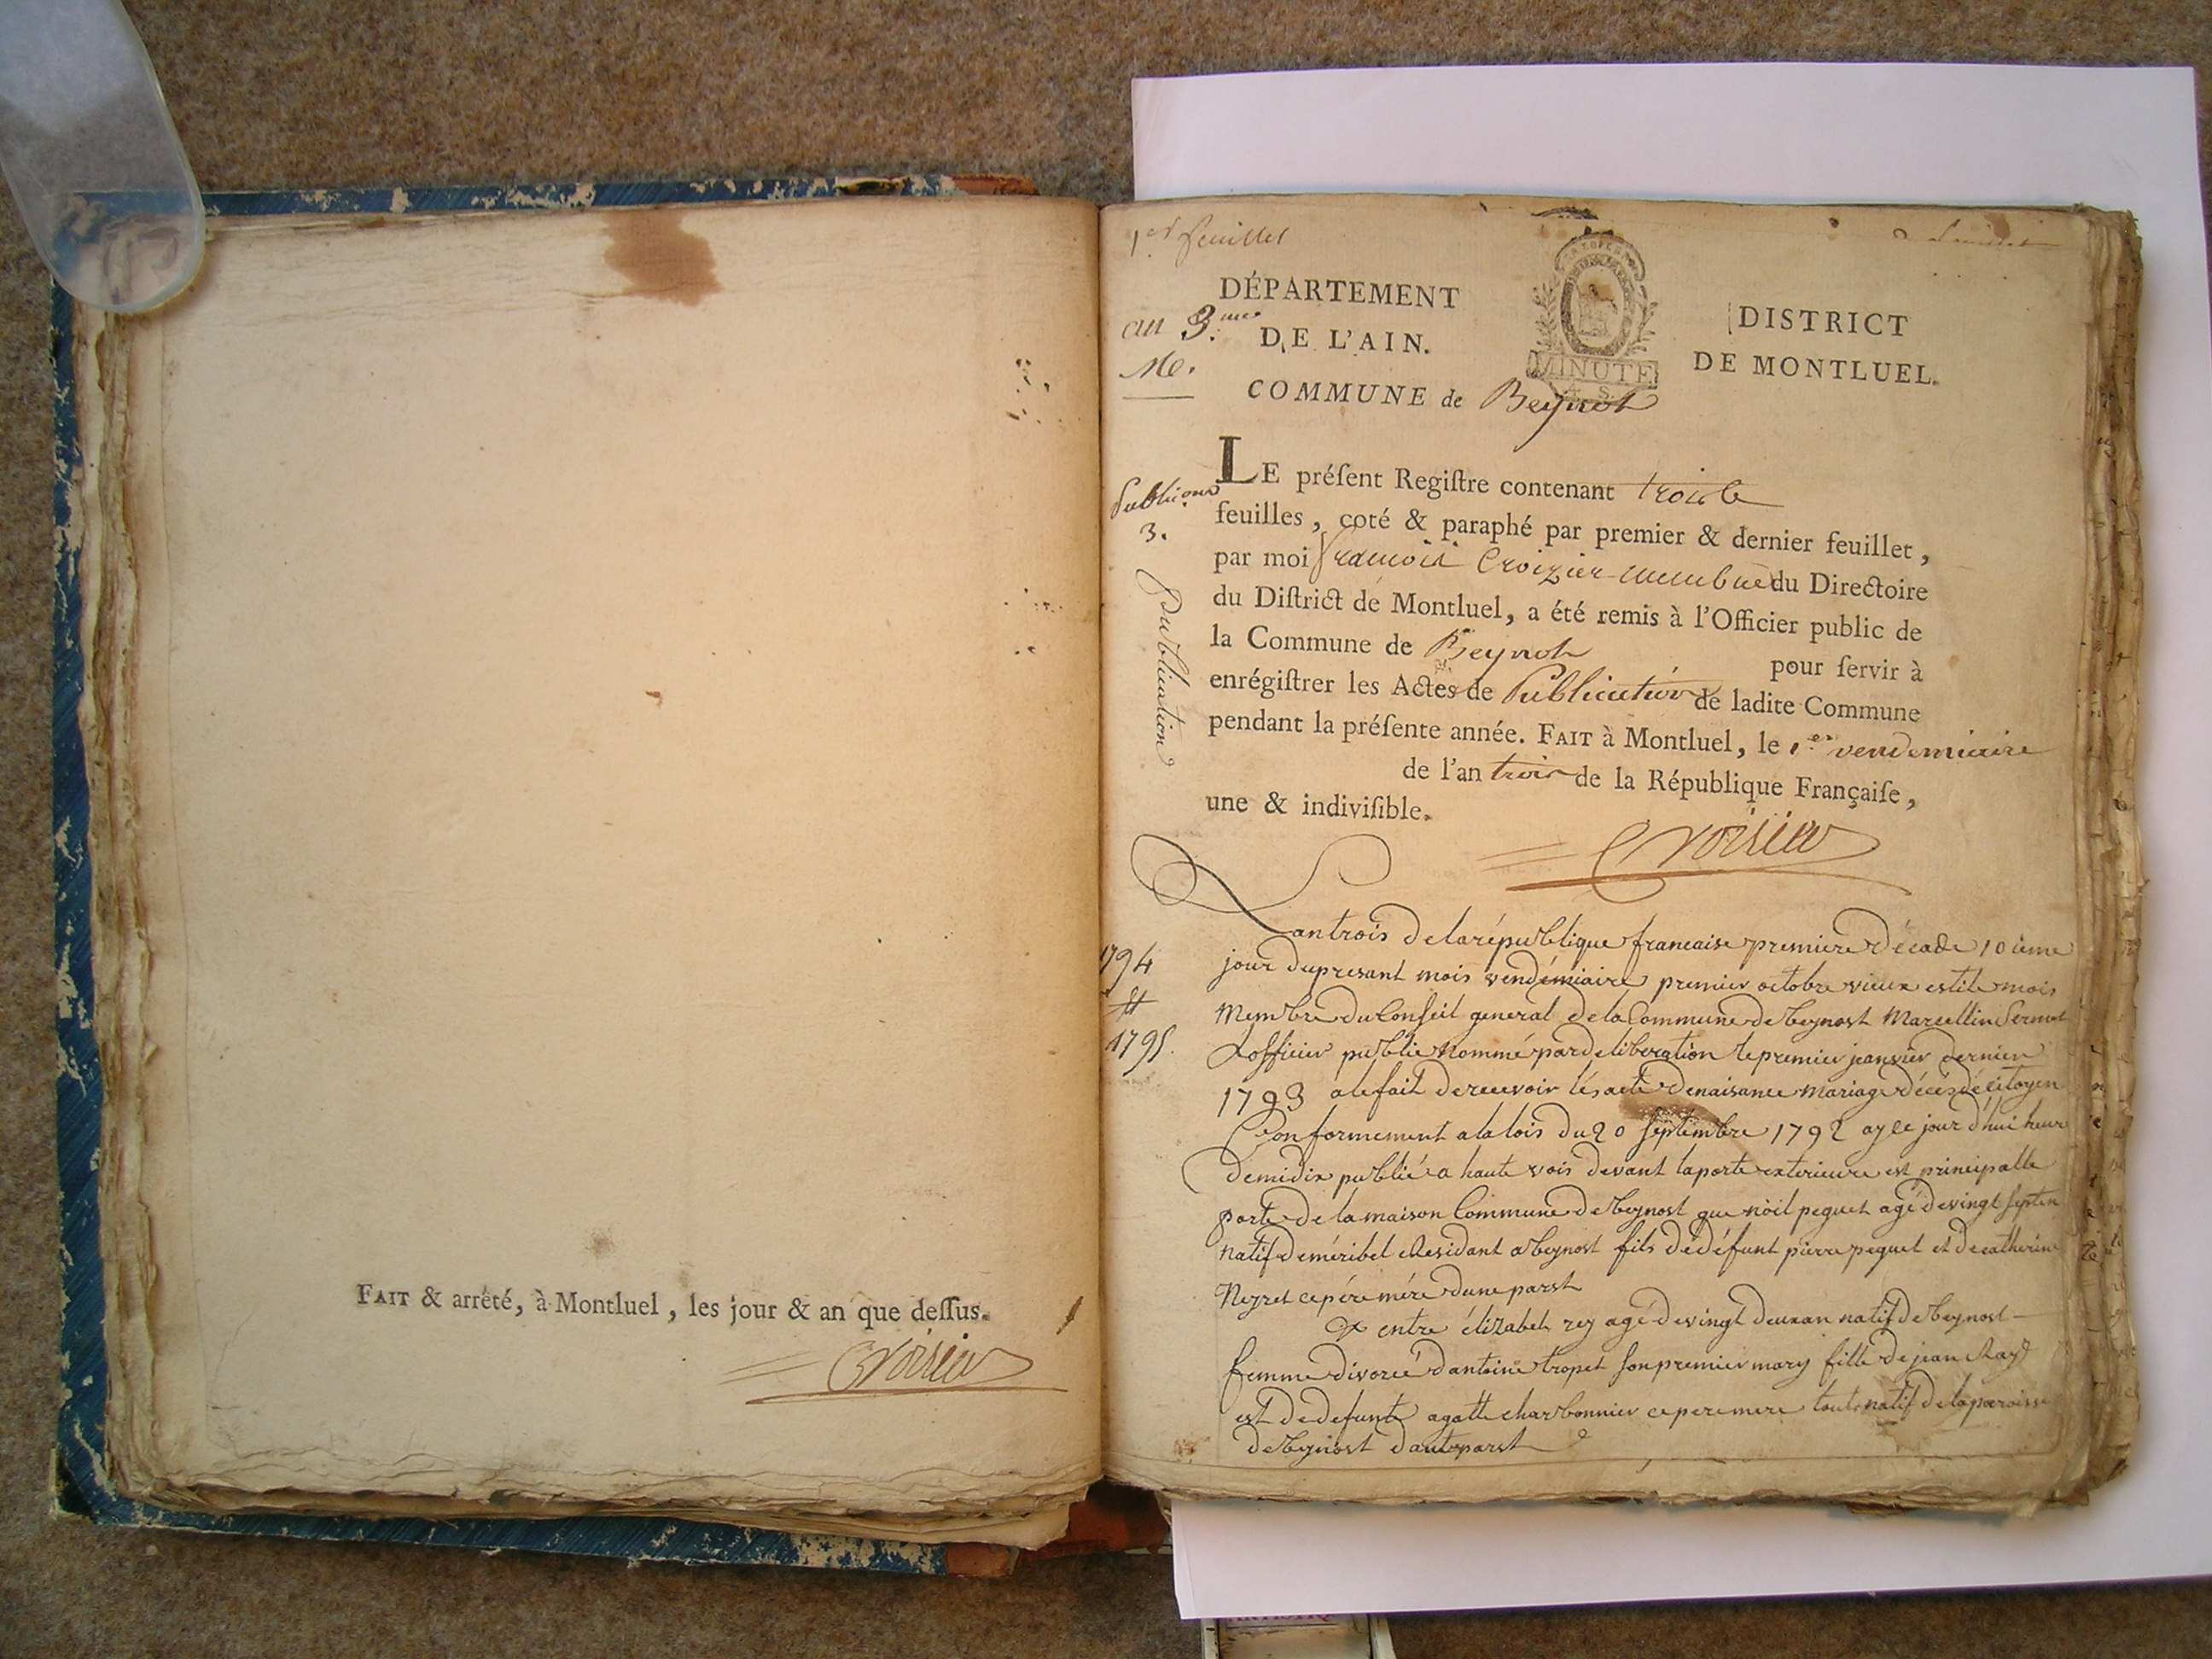 FAIT & arrêté, à Montluel, les jour & an que deſſus.
Croisier
1er feuillet
DÉPARTEMENT
DE L'AIN.
COMMUNE de Beynost
MINUTE
DISTRICT
DE MONTLUEL.
an 3.me
Publicaons
3.
Publication
LE préſent Regiſtre contenant trois
feuilles, coté & paraphé par premier & dernier feuillet,
par moi francois Croizier membre du Directoire
du Diſtrict de Montluel, a été remis à l'Officier public de
la Commune de Beynost pour ſervir à
enrégiſtrer les Actes de Publication de ladite Commune
pendant la préſente année. FAIT à Montluel, le 1.er vendemiaire
de l'an trois de la République Françaiſe,
une & indiviſible.
Croisier
1794
et
1795.
Lan trois de la république francaise premiere décade 10 ieme
jour du presant mois vendémiaire premier octobre vieux estile mois
Membre du Conseil general de la Commune de beynost Marcellin
Lofficier public nommé par deliberation le premier jeanvier dernier
1793 a lefait de recevoir lés acte de naisance mariage décés dé citoyen
Conformement a la lois du 20 septembre 1792 ay ce jour d'hui heur
de midix publié a haute vois devant la porte exterieure est principalle
porte de la maison Commune de beynost que nöel peguet agé de vingt sept an
natif de méribel Residant a beynost fils dé défunt pierre peguet et de catherine
Neyret ce pére mére dune parst
Et entre élizabet rey agé de vingt deux an natif de beynost
femme divorcé dantoine tropet son premier mary fille de jean Ray
est de defunte agatte charbonnier ce pere mere tout natif de la paroisse
de beynost dautre parst